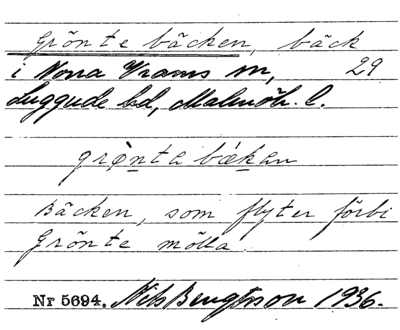 Grönte bäcken, bäck
i Norra Vrams sn, 29
Luggude hd, Malmöh. l.
grönta bækan
Bäcken, som flyter förbi
Grönte mölla.
Nr 5694. Nils Bengtsson 1936.